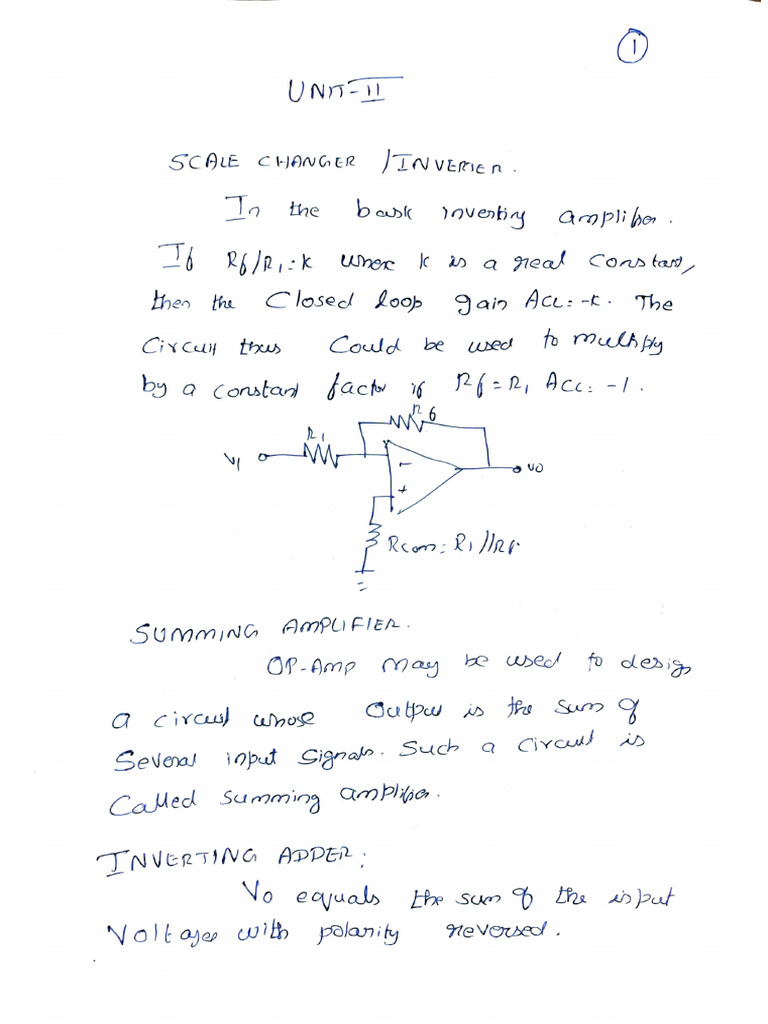 1
UNIT-II
SCALE CHANGER / INVERTER.
In the basic inverting amplifier.
If Rf/R1=k where k is a real constant,
then the Closed loop gain ACL=-k. The
Circuit thus Could be used to multiply
by a constant factor if Rf=R1 ACL=-1.
Rf
R1
V1
-
+
VO
Rcom=R1//Rf.
SUMMING AMPLIFIER.
OP-Amp may be used to design
a circuit whose Output is the sum of
Several input signals. Such a circuit is
Called summing amplifier.
INVERTING ADDER:
Vo equals the sum of the input
Voltages with polarity reversed.